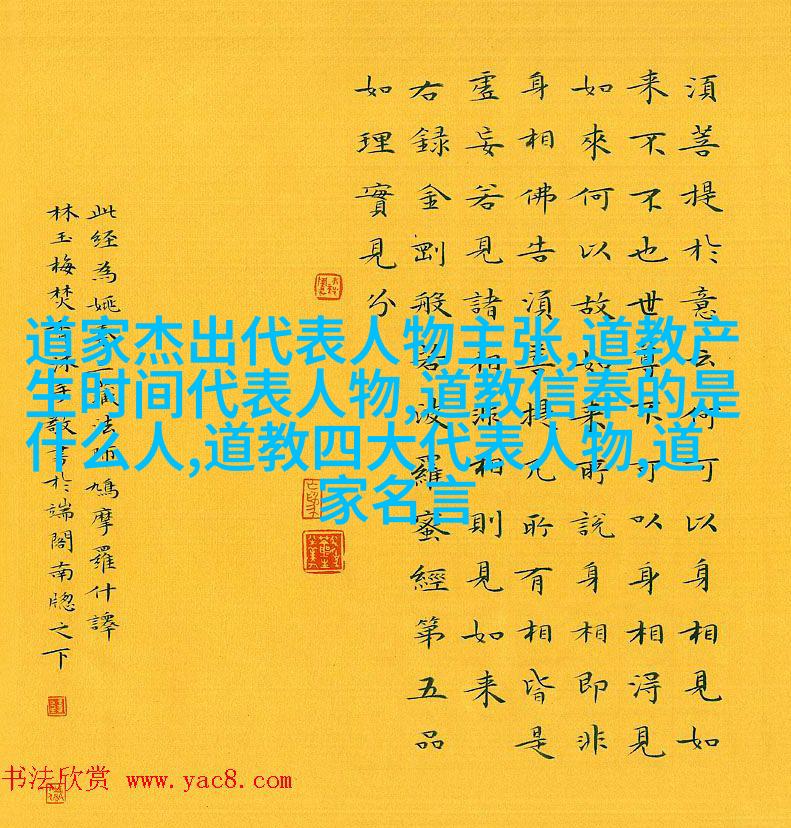 道家杰出代表人物主张,道教产
生时间代表人物,道教信奉的是
什么人,道教四大代表人物,道
家名言
須菩提於意云何可以身相見如
来不不也世尊不可以身相得見
如來何以故如来所說身相即非
身相佛告須菩提凡所有相皆是
虚妄若見諸相非相則見如来
右録金剛般若波羅蜜經第五品
如理實見分
此経為姚秦三藏法師鳩摩羅什譯
林玉梅焚香沐手敬書於端閣南牎之下
书法欣赏 www.yac8.com